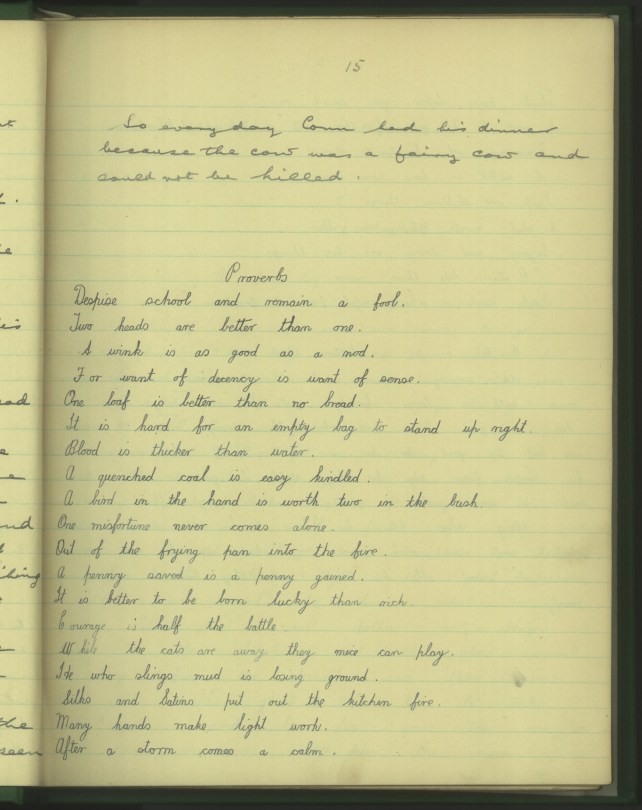 15
So every day Conn had his dinner
because the cow was a fairy cow and
could not be killed.
Proverbs
Despise school and remain a fool.
Two heads are better than one.
A wink is as good as a nod.
For want of decency is want of sense.
One loaf is better than no bread.
It is hard for an empty bag to stand up right.
Blood is thicker than water.
A quenched coal is easy kindled.
A bird in the hand is worth two in the bush.
One misfortune never comes alone.
Out of the frying pan into the fire.
A penny saved is a penny gained.
It is better to be born lucky than rich
Courage is half the battle
While the cats are away they mice can play.
He who slings mud is losing ground.
Silks and Satins put out the kitchen fire.
Many hands make light work.
the
seen
After a storm comes a calm.